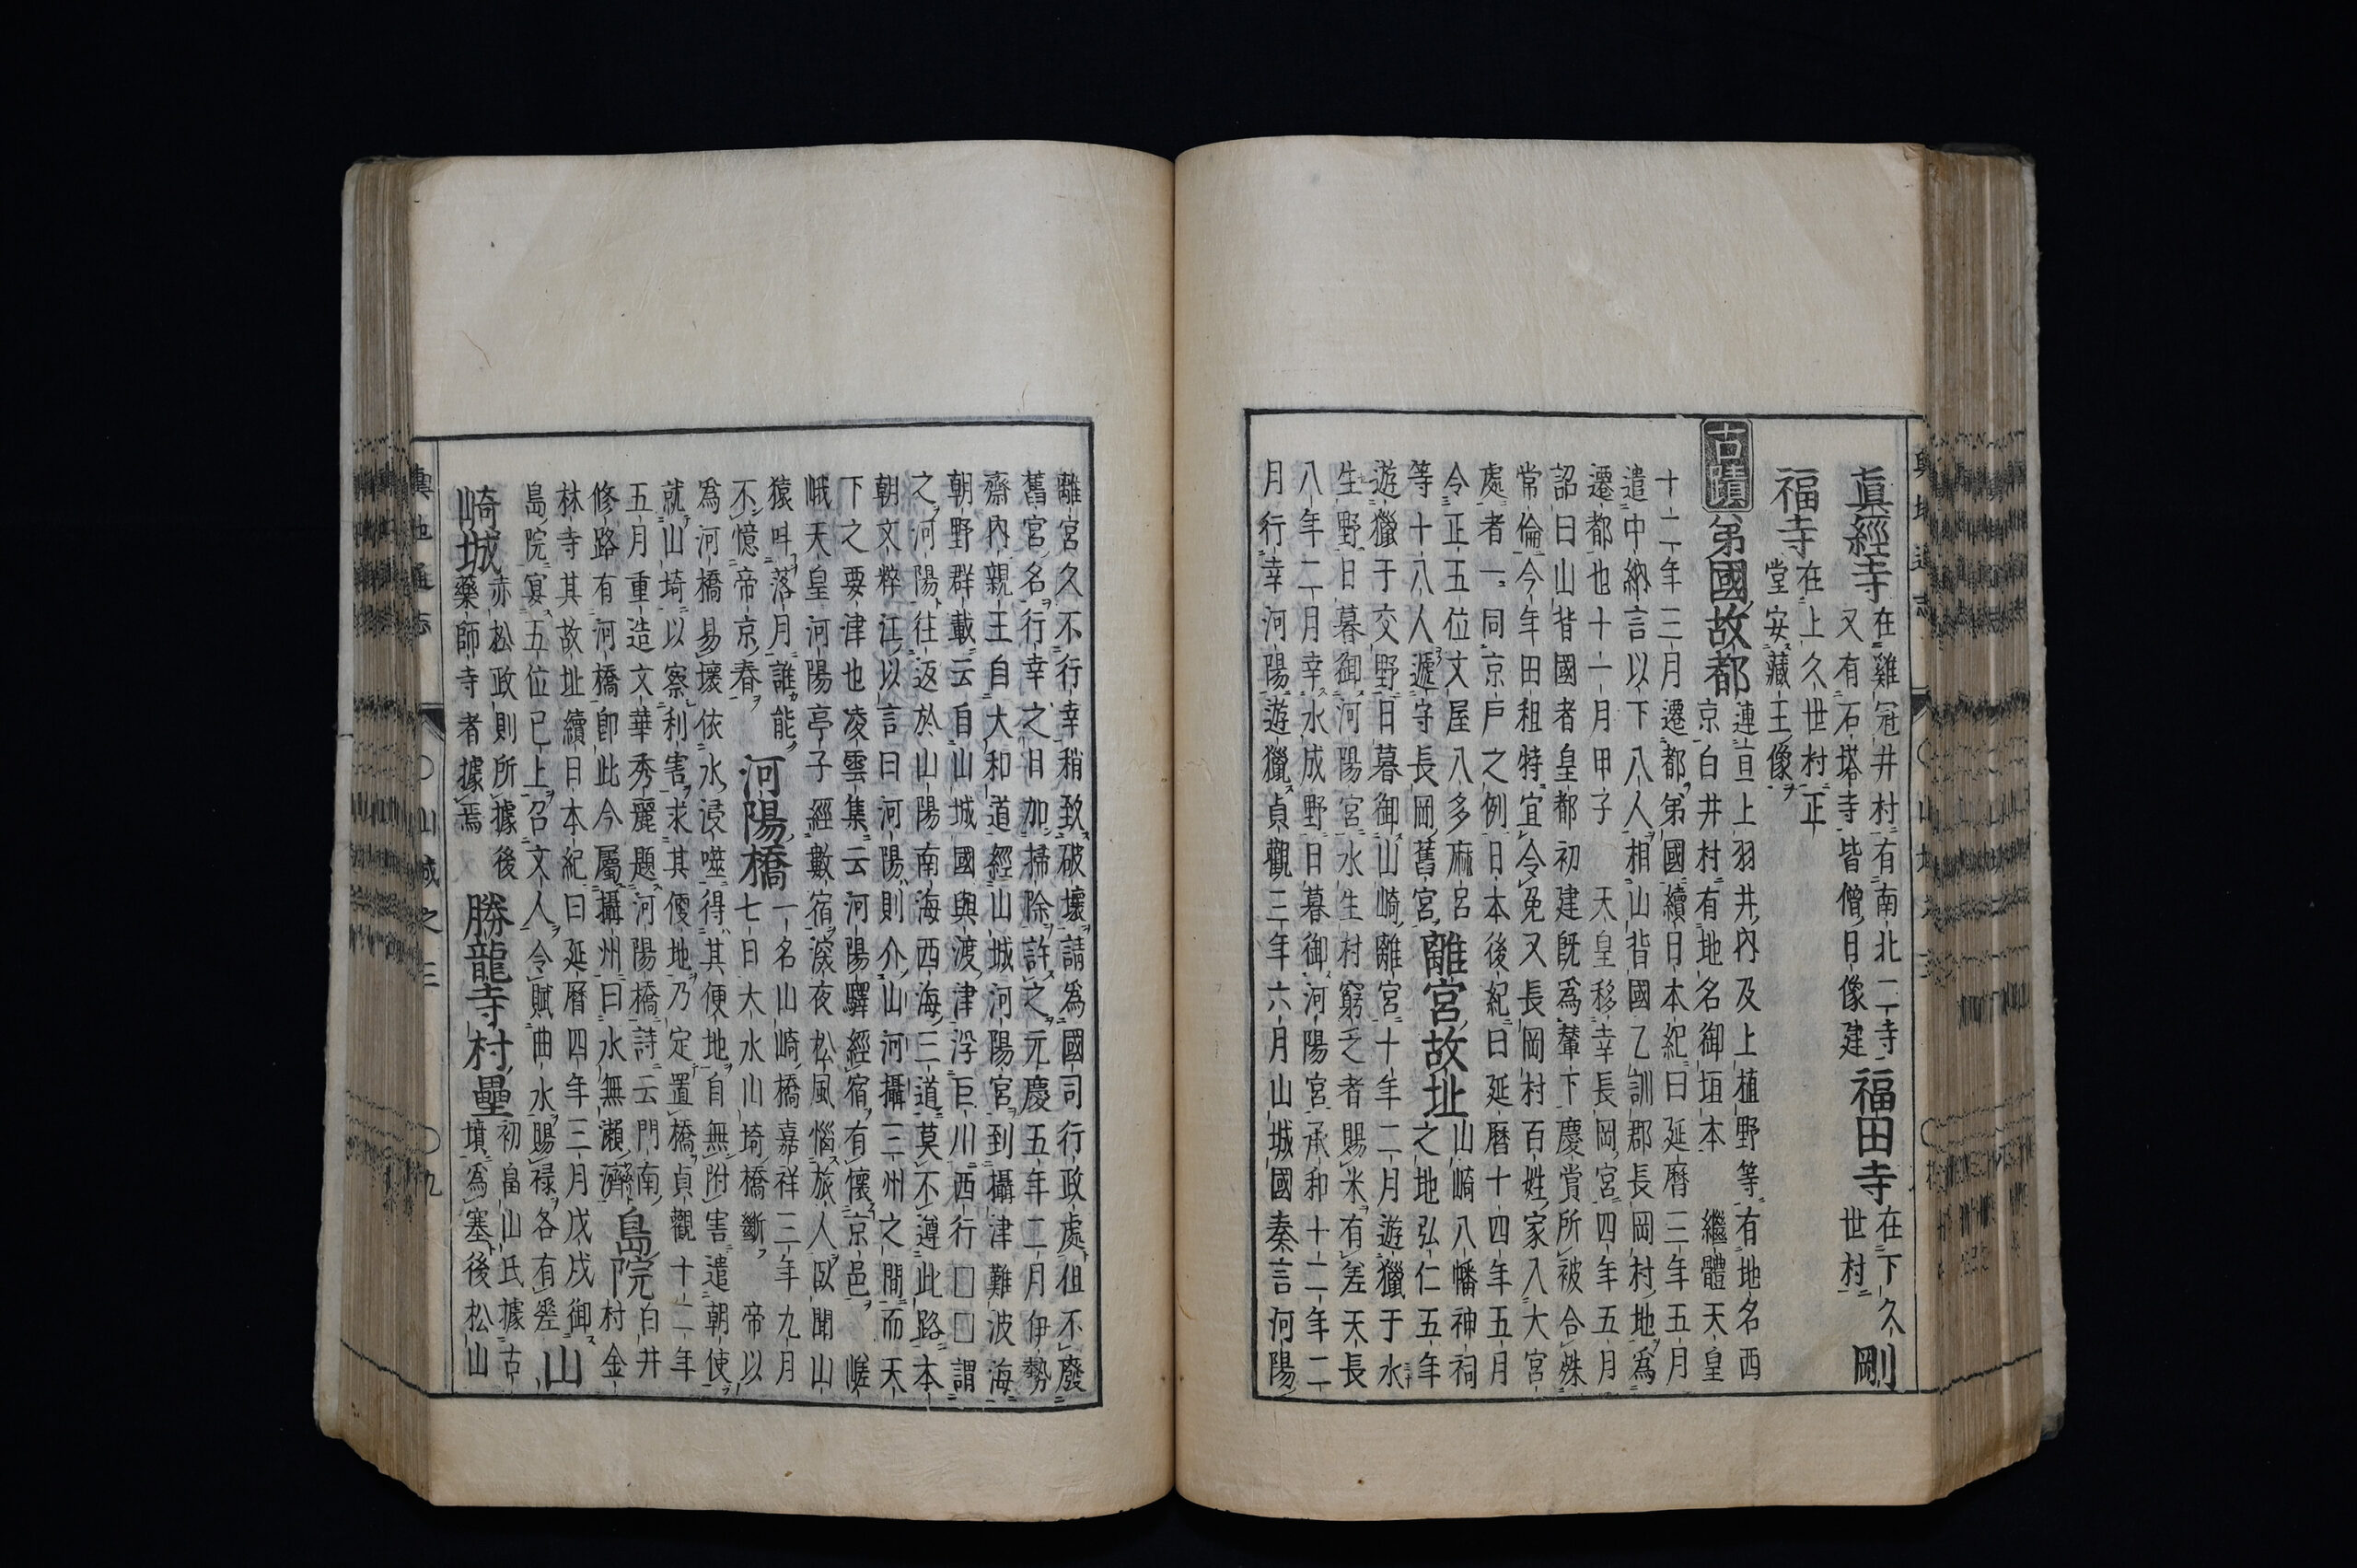 眞經寺在雞冠井村有南北二寺
又有石塔寺皆僧日像建
福田寺在下久
世村
剛
福寺在上久世村正
堂安藏王像
古蹟
第國故都連亘上羽井內及上植野等有地名西
京白井村有地名御垣本　繼體天皇
十二年三月遷都第國續日本紀曰延曆三年五月
遣中納言以下八人相山背國乙訓郡長岡村地爲
遷都也十一月甲子　天皇移幸長岡宮四年五月
詔曰山背國者皇都初建既爲輦下慶賞所被合殊
常倫今年田租特宜令免又長岡村百姓家入大宮
處者一同京戶之例日本後紀曰延曆十四年五月
令正五位文屋八多麻呂
等十八人遞守長岡舊宮
離宮故址山崎八幡神祠
之地弘仁五年
遊獵于交野日暮御山崎離宮十年二月遊獵于水
生野日暮御河陽宮水生村窮乏者賜米有差天長
八年二月幸水成野日暮御河陽宮承和十二年二
月行幸河陽遊獵貞觀三年六月山城國奏言河陽
離宮久不行幸稍致破壞請爲國司行政處但不廢
舊宮名行幸之日加掃除許之元慶五年二月伊勢
齋內親王自大和道經山城河陽宮到攝津難波海
朝野群載云自山城國與渡津浮巨川西行□□謂
之河陽往返於山陽南海西海三道莫不遵此路本
朝文粹江以言曰河陽則介山河攝三州之間而天
下之要津也凌雲集云河陽驛經宿有懷京邑　嵯
峨天皇河陽亭子經數宿淚夜松風惱旅人臥聞山
猿叫落月誰能
不憶帝京春
河陽橋一名山崎橋嘉祥三年九月
七日大水山埼橋斷　帝以
爲河橋易壞依水浸噬得其便地自無附害遣朝使
就山埼以察利害求其便地乃定置橋貞觀十二年
五月重造文華秀麗題河陽橋詩云門南
修路有河橋卽此今屬攝州曰水無瀨濟
島院白井
村金
林寺其故址續日本紀曰延曆四年三月戊戌御
島院宴五位已上召文人令賦曲水賜祿各有差
山
崎城赤松政則所據後
藥師寺者據焉
勝龍寺村壘初畠山氏據古
墳爲塞後松山
輿地通志　○山城之三　○九